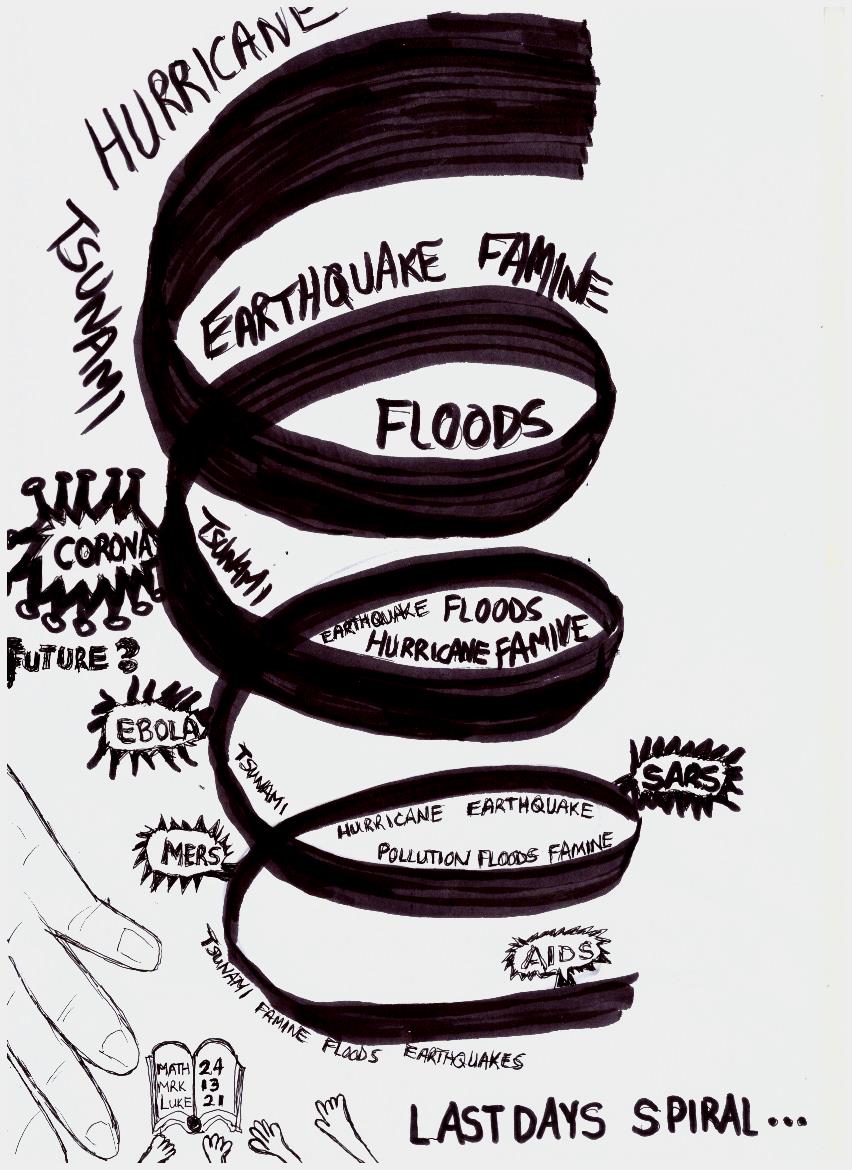 HURRICANE
TSUNAMI
EARTHQUAKE FAMINE
FLOODS
CORONA
TSUNAMI
EARTHQUAKE FLOODS
HURRICANE FAMINE
FUTURE ?
EBOLA
TSUNAMI
SARS
HURRICANE EARTHQUAKE
POLLUTION FLOODS FAMINE
MERS
AIDS
TSUNAMI FAMINE FLOODS EARTHQUAKES
MATH 24
MRK 13
LUKE 21
LAST DAYS SPIRAL...